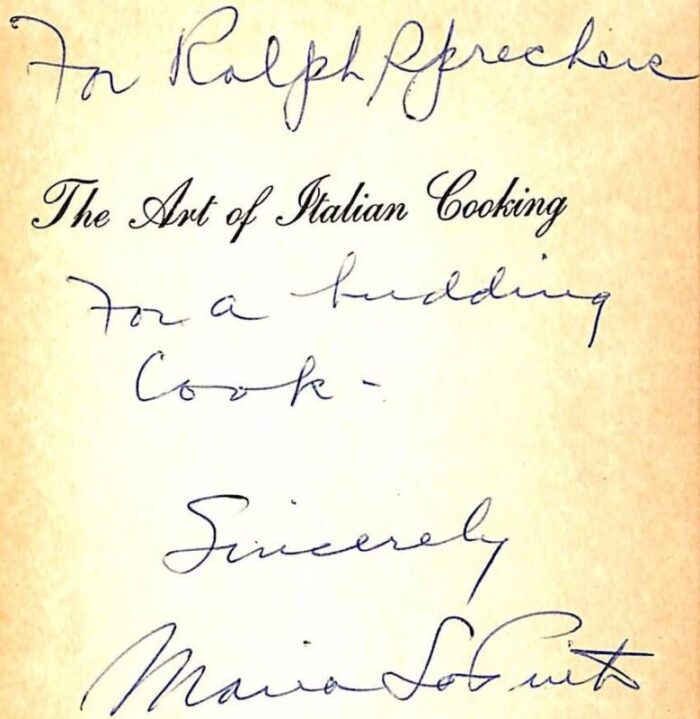 For Ralph Sprechere
The Art of Italian Cooking
For a budding
Cook -
Sincerely
Maria Lo Pinto